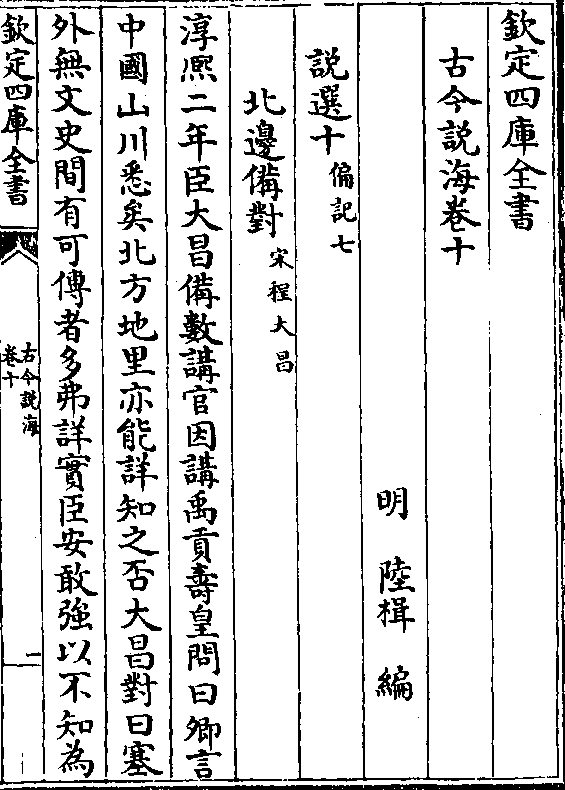 欽定四庫全書
古今説海卷十
明 陸楫 編
説選十 偏記七
北邊備對 宋程大昌
淳熈二年臣大昌備數講官因講禹貢壽皇問曰卿言
中國山川悉矣北方地里亦能詳知之否大昌對曰塞
外無文史間有可傳者多弗詳實臣安敢強以不知為
欽定四庫全書
古今説海
卷十
一